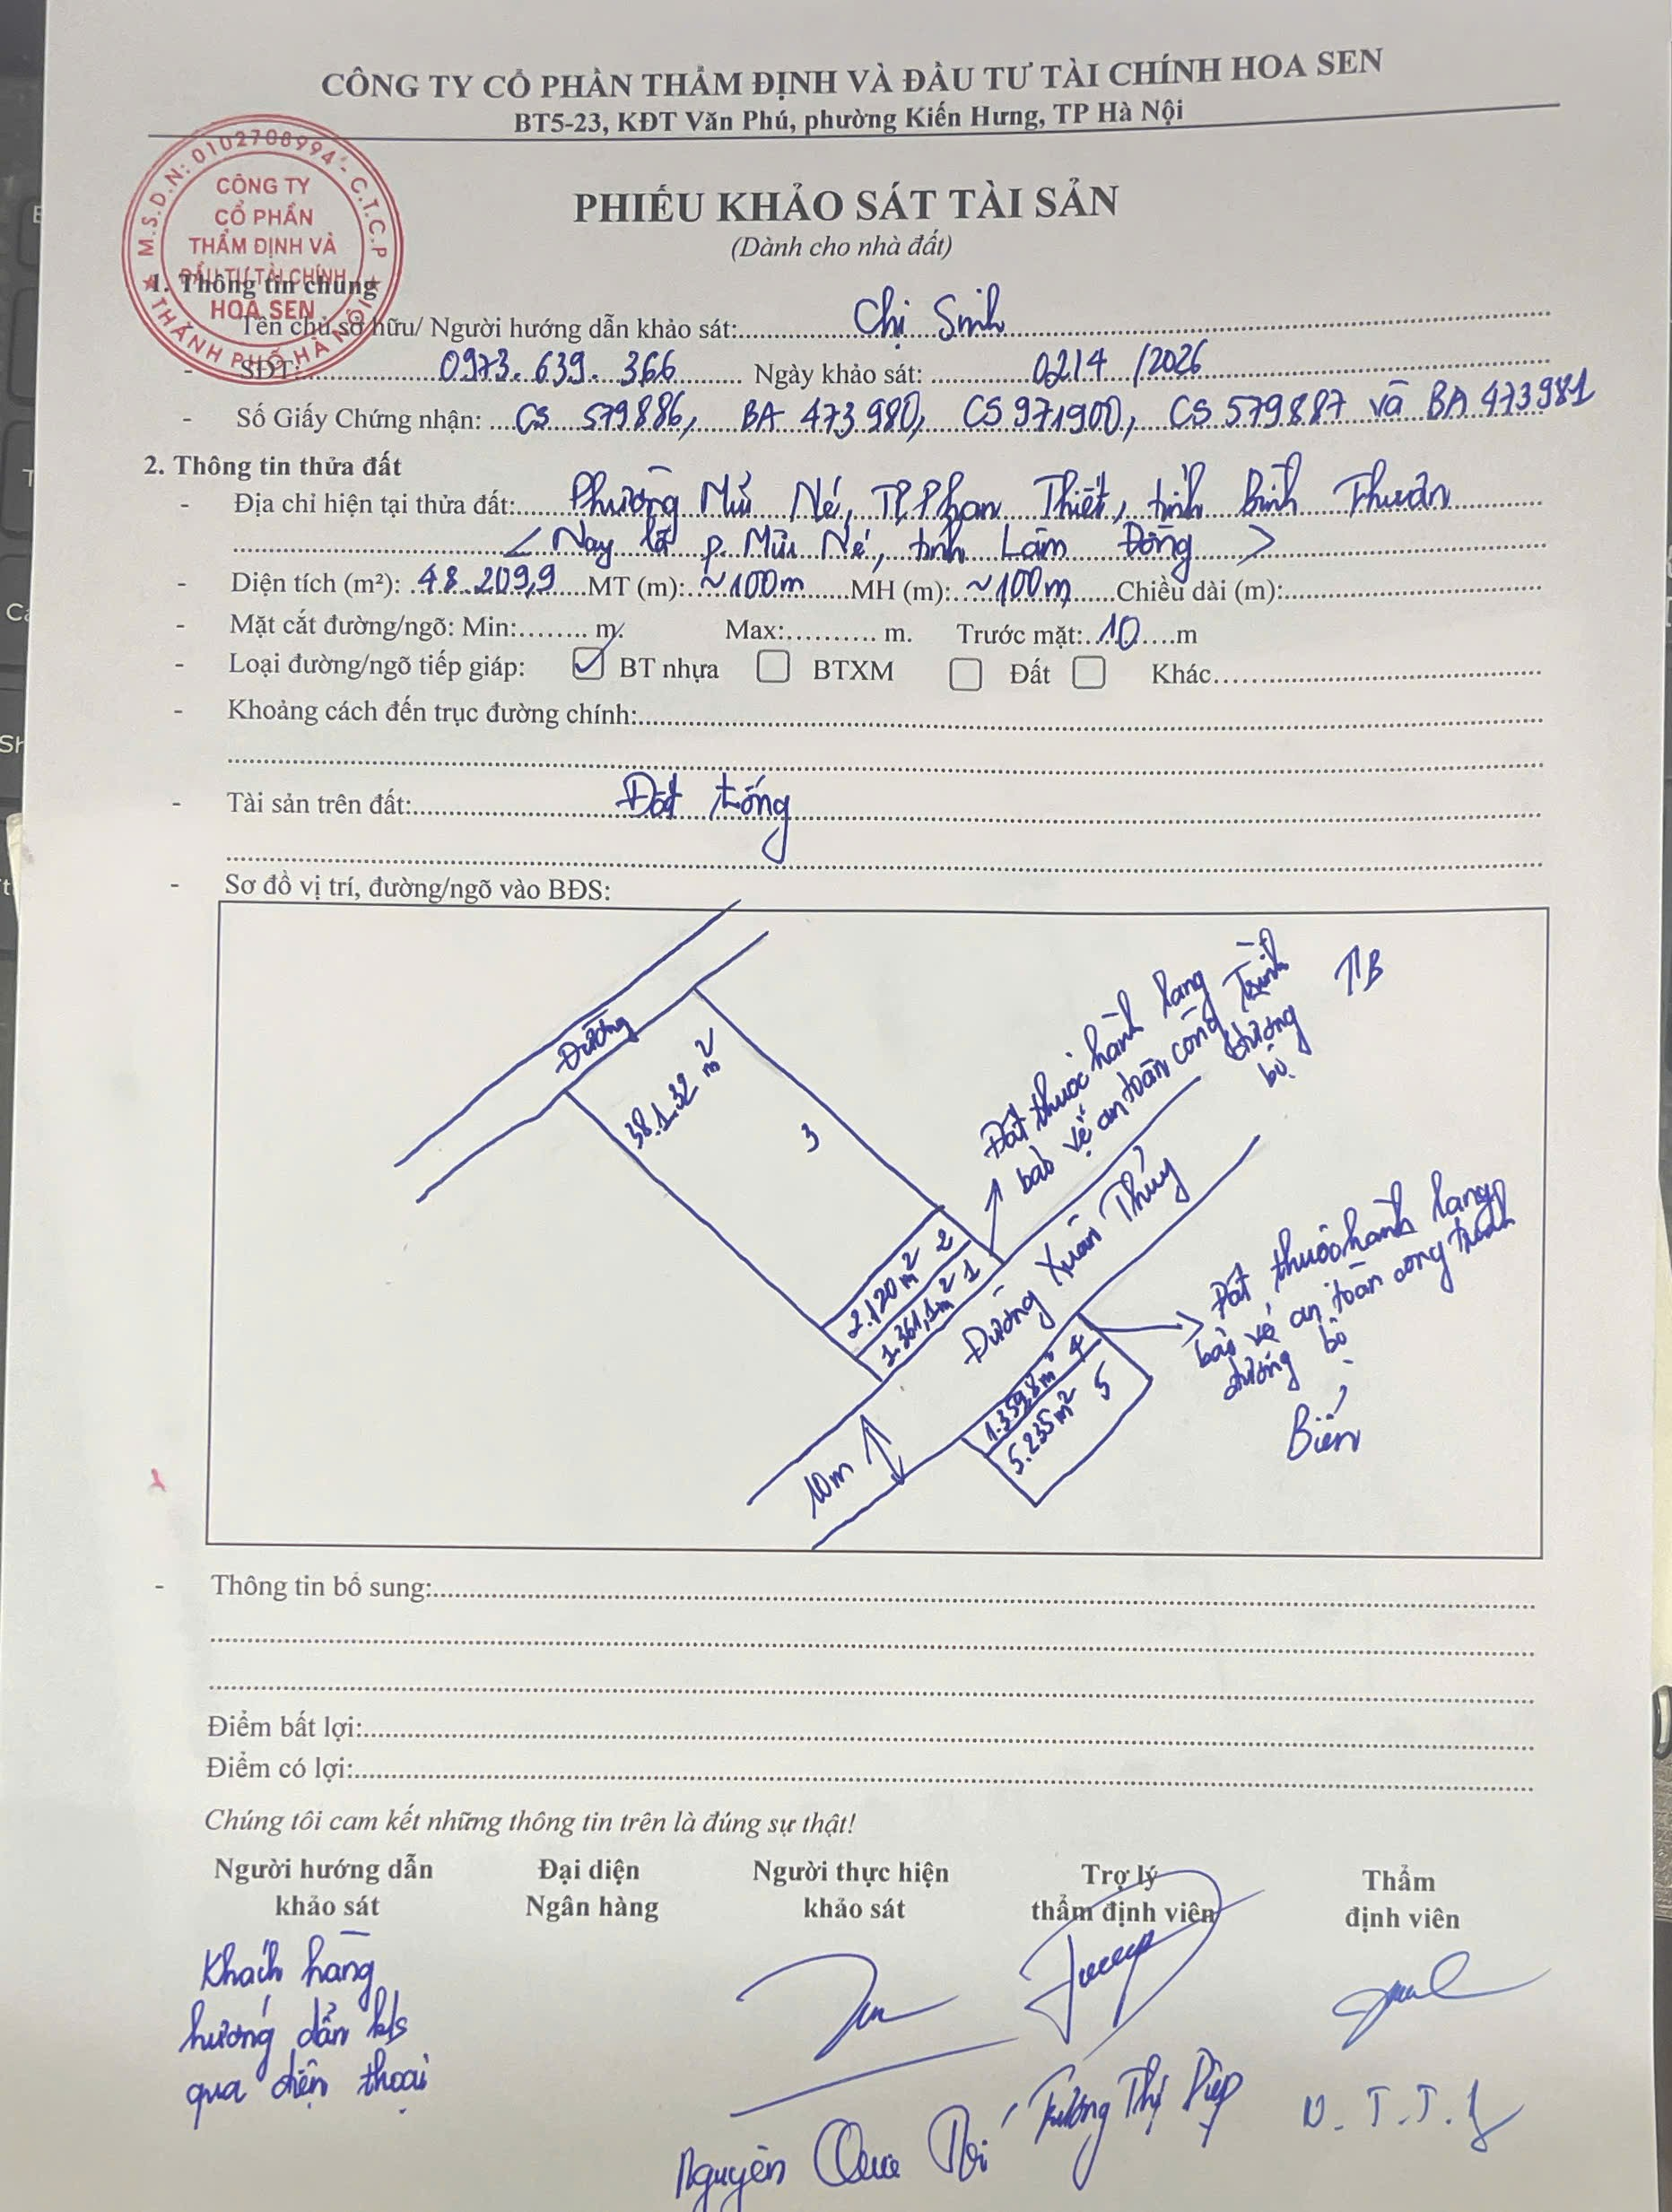 CÔNG TY CỔ PHẦN THẨM ĐỊNH VÀ ĐẦU TƯ TÀI CHÍNH HOA SEN
BT5-23, KĐT Văn Phú, phường Kiến Hưng, TP Hà Nội
M.S.D.N: 0102708994 - C.T.C.P
CÔNG TY
CỔ PHẦN
THẨM ĐỊNH VÀ
ĐẦU TƯ TÀI CHÍNH
HOA SEN
THÀNH PHỐ HÀ NỘI
PHIẾU KHẢO SÁT TÀI SẢN
(Dành cho nhà đất)
1. Thông tin chung
Tên chủ sở hữu/ Người hướng dẫn khảo sát: Chị Sinh
- SĐT: 0973.639.366 Ngày khảo sát: 02/4/2026
- Số Giấy Chứng nhận: CS 579886, BA 473980, CS 971900, CS 579887 và BA 473981
2. Thông tin thửa đất
- Địa chỉ hiện tại thửa đất: Phường Mũi Né, TP. Phan Thiết, tỉnh Bình Thuận
(Nay là p. Mũi Né, tỉnh Lâm Đồng)
- Diện tích (m²): 48.209,9 MT (m): ~100m MH (m): ~100m Chiều dài (m):
- Mặt cắt đường/ngõ: Min: m. Max: m. Trước mặt: 10 m
- Loại đường/ngõ tiếp giáp: ☑ BT nhựa ☐ BTXM ☐ Đất ☐ Khác
- Khoảng cách đến trục đường chính:
- Tài sản trên đất: Đất trống
- Sơ đồ vị trí, đường/ngõ vào BĐS:
Đường
38.132 m²
3
Đất thuộc hành lang
bảo vệ an toàn công trình
đường
bộ
2.120 m² 2
1.361,1 m² 1
Đường Xuân Thủy
Đất thuộc hành lang
bảo vệ an toàn công trình
đường bộ
1.359,8 m² 4
5.235 m² 5
10m
Biển
- Thông tin bổ sung:
Điểm bất lợi:
Điểm có lợi:
Chúng tôi cam kết những thông tin trên là đúng sự thật!
Người hướng dẫn khảo sát
Đại diện Ngân hàng
Người thực hiện khảo sát
Trợ lý thẩm định viên
Thẩm định viên
Khách hàng
hướng dẫn k/s
qua điện thoại
Trương Thị Diệp
N.T.T.
Nguyễn